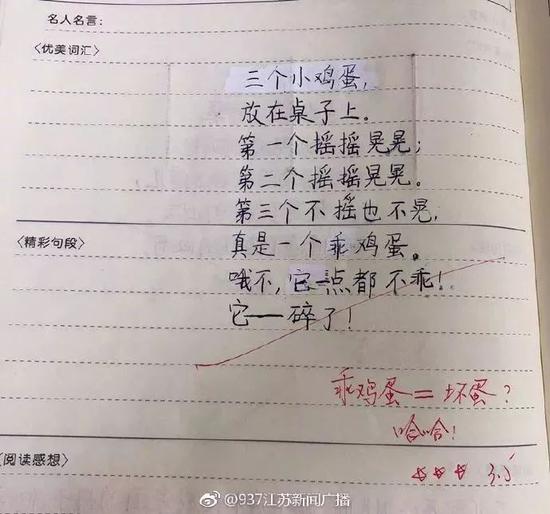 名人名言:
〈优美词汇〉
三个小鸡蛋,
放在桌子上。
第一个摇摇晃晃;
第二个摇摇晃晃。
第三个不摇也不晃,
〈精彩句段〉
真是一个乖鸡蛋。
哦不,它一点都不乖!
它——碎了!
乖鸡蛋=坏蛋?
哈哈!
〈阅读感想〉
@937江苏新闻广播